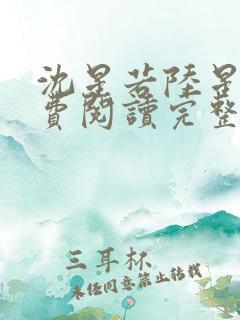 沈星若陸星
費閱讀完整
三耳杯
未經同意禁止轉載